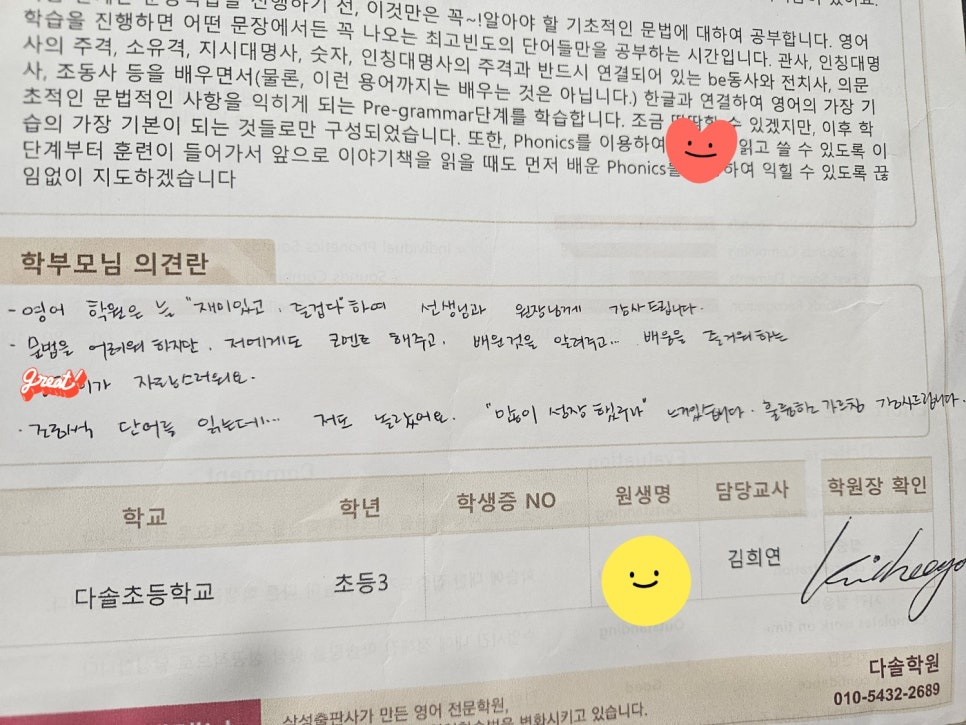 학습을 진행하기 전, 이것만은 꼭~!알아야 할 기초적인 문법에 대하여 공부합니다. 영어
학습을 진행하면 어떤 문장에서든 꼭 나오는 최고빈도의 단어들만을 공부하는 시간입니다. 관사, 인칭대명
사의 주격, 소유격, 지시대명사, 숫자, 인칭대명사의 주격과 반드시 연결되어 있는 be동사와 전치사, 의문
사, 조동사 등을 배우면서(물론, 이런 용어까지는 배우는 것은 아닙니다.) 한글과 연결하여 영어의 가장 기
초적인 문법적인 사항을 익히게 되는 Pre-grammar단계를 학습합니다. 조금 수 있겠지만, 이후 학
습의 가장 기본이 되는 것들로만 구성되었습니다. 또한, Phonics를 이용하여 읽고 쓸 수 있도록 이
단계부터 훈련이 들어가서 앞으로 이야기책을 읽을 때도 먼저 배운 Phonics를 하여 익힐 수 있도록 끊
임없이 지도하겠습니다
학부모님 의견란
- 영어 학원은 늘 "재미있고, 즐겁다"하여 선생님과 원장님께 감사드립니다.
- 문법을 어려워 하지만, 저에게도 코멘트 해주고, 배운것을 알려주고... 배움을 즐거워 하는
great! 이가 자랑스러워요.
- 단어를 읽는데... 저도 놀랐어요. "많이 성장했구나" 느꼈습니다. 훌륭하신 가르침 감사드립니다.
학교 학년 학생증 NO 원생명 담당교사 학원장 확인
다솔초등학교 초등3 김희연
다솔학원
010-5432-2689
삼성출판사가 만든 영어 전문학원,
변화시키고 있습니다.